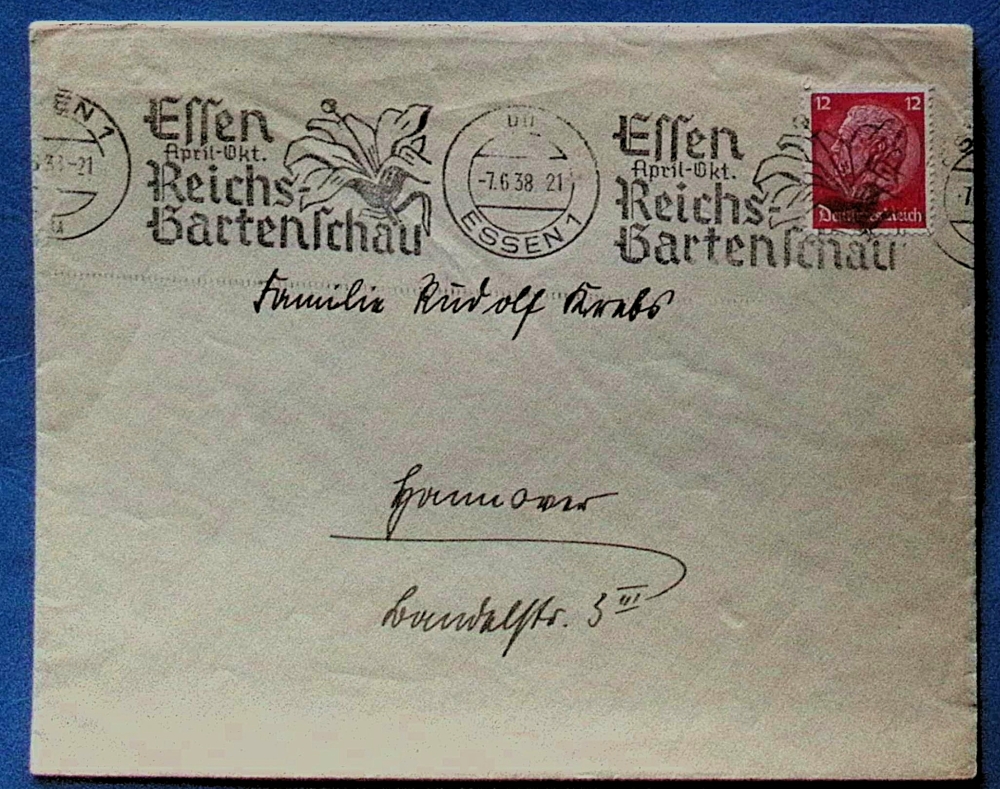 EN 1
38-21
Essen
April-Okt.
Reichs-
Gartenschau
-7.6.38 21
ESSEN 1
Essen
April-Okt.
Reichs-
Gartenschau
12 12
Deutsches Reich
Familie Rudolf Krebs
Hannover
Bandelstr. 3 III